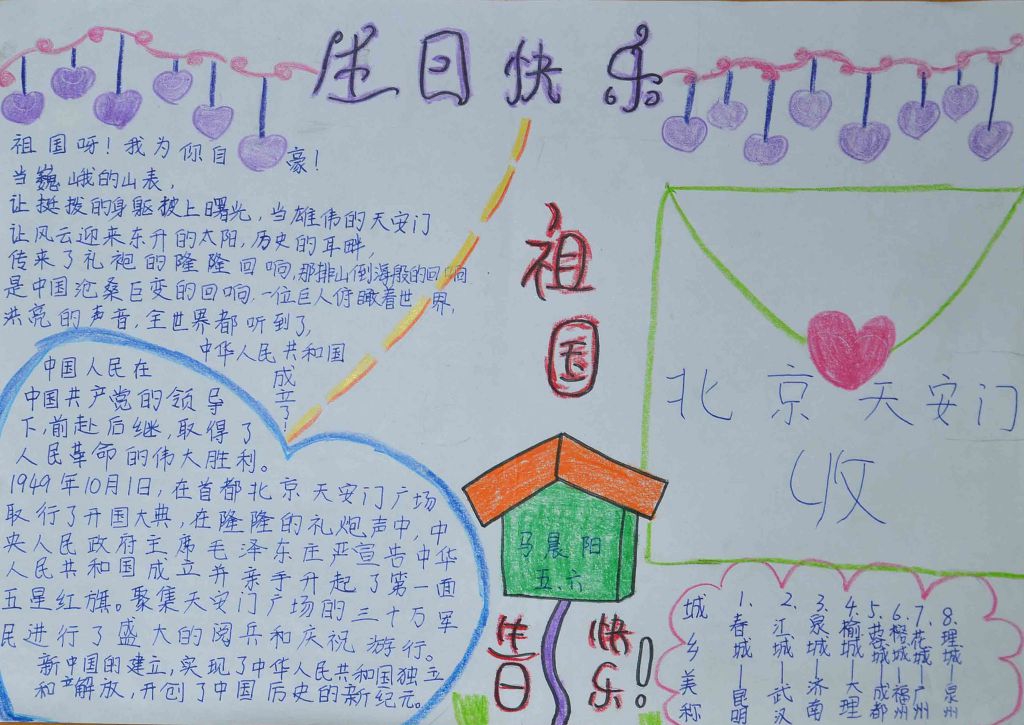 生日快乐
祖国呀！我为你自豪！
当巍峨的山表，
让挺拨的身躯披上曙光，当雄伟的天安门
让风云迎来东升的太阳，历史的耳畔，
传来了礼袍的隆隆回响，那排山倒海般的回响
是中国沧桑巨变的回响，一位巨人俯瞰着世界，
洪亮的声音，全世界都听到了，
中华人民共和国
成立了！
中国人民在
中国共产党的领导
下，前赴后继，取得了
人民革命的伟大胜利。
1949年10月1日，在首都北京天安门广场
取行了开国大典，在隆隆的礼炮声中，中
央人民政府主席毛泽东庄严宣告中华
人民共和国成立并亲手升起了第一面
五星红旗。聚集天安门广场的三十万军
民进行了盛大的阅兵和庆祝游行。
新中国的建立，实现了中华人民共和国独立
和解放，开创了中国历史的新纪元。
祖
国
马晨阳
五六
生日
快乐！
北京天安门
收
城乡美称
1.春城—昆明
2.江城—武汉
3.泉城—济南
4.榆城—大理
5.蓉城—成都
6.榕城—福州
7.花城—广州
8.理城—泉州